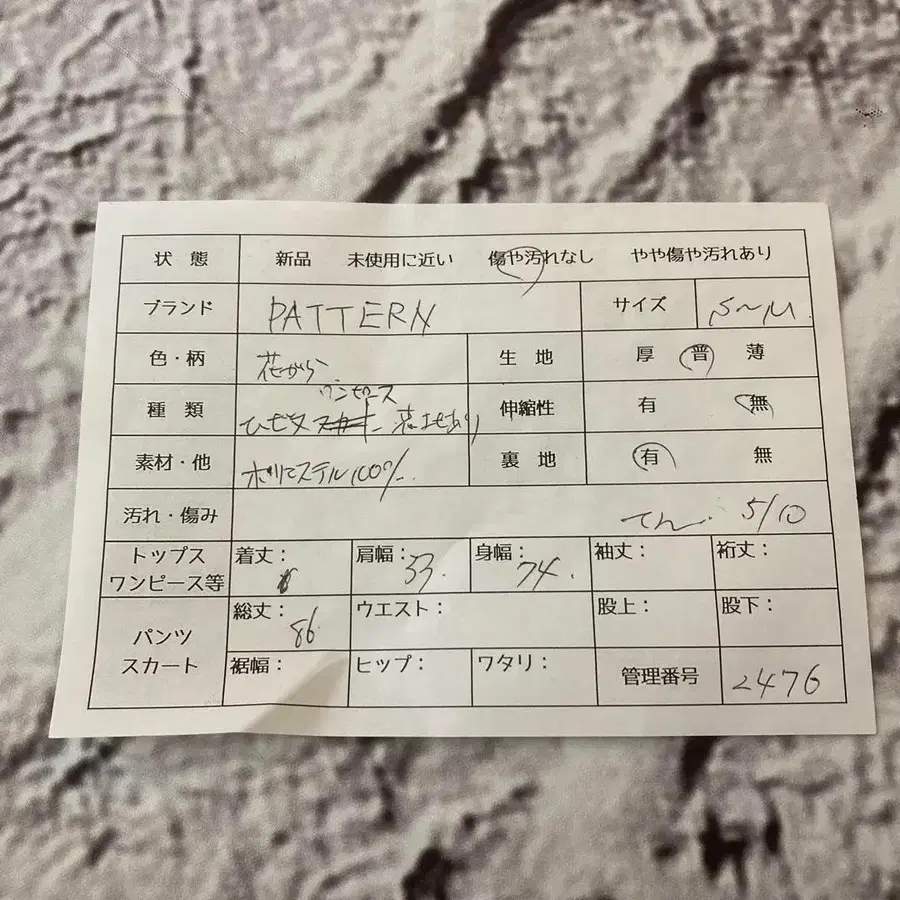 状 態 新品 未使用に近い 傷や汚れなし やや傷や汚れあり
ブランド PATTERN サイズ S〜M
色・柄 花がら 生 地 厚 普 薄
ワンピース
種 類 ひざ丈 裏地あり 伸縮性 有 無
素材・他 ポリエステル100% 裏 地 有 無
汚れ・傷み 5/10
トップス
ワンピース等 着丈： 肩幅：33. 身幅：74. 袖丈： 裄丈：
パンツ
スカート 総丈：86 ウエスト： 股上： 股下：
裾幅： ヒップ： ワタリ： 管理番号 2476